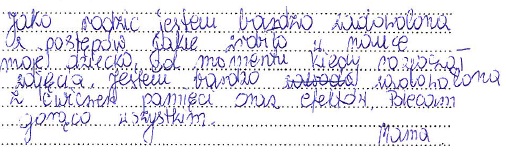 Jako rodzic jestem bardzo zadowolona
z postępów jakie zrobiło w nauce
moje dziecko, od momentu kiedy rozpoczął
zajęcia. Jestem bardzo zadowolona
z ćwiczeń pamięci oraz efektów. Polecam
gorąco wszystkim.
Mama